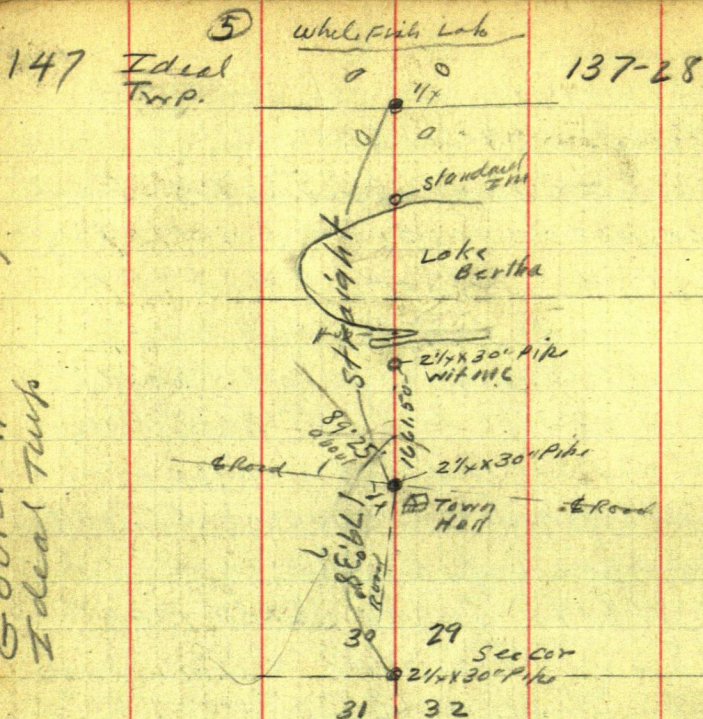 5
Whitefish Lake
147 Ideal
Twp.
137-28
1/4
Standard
Im
Lake
Bertha
straight
2 1/4 X 30" Pipe
Wit MC
1661.50
89.25
about
¢ Road
2 1/4 X 30" Pipe
Town
Hall
¢ Road
179.38
Road
?
30 29
Sec cor
2 1/4 X 30" Pipe
31 32
Ideal Twp